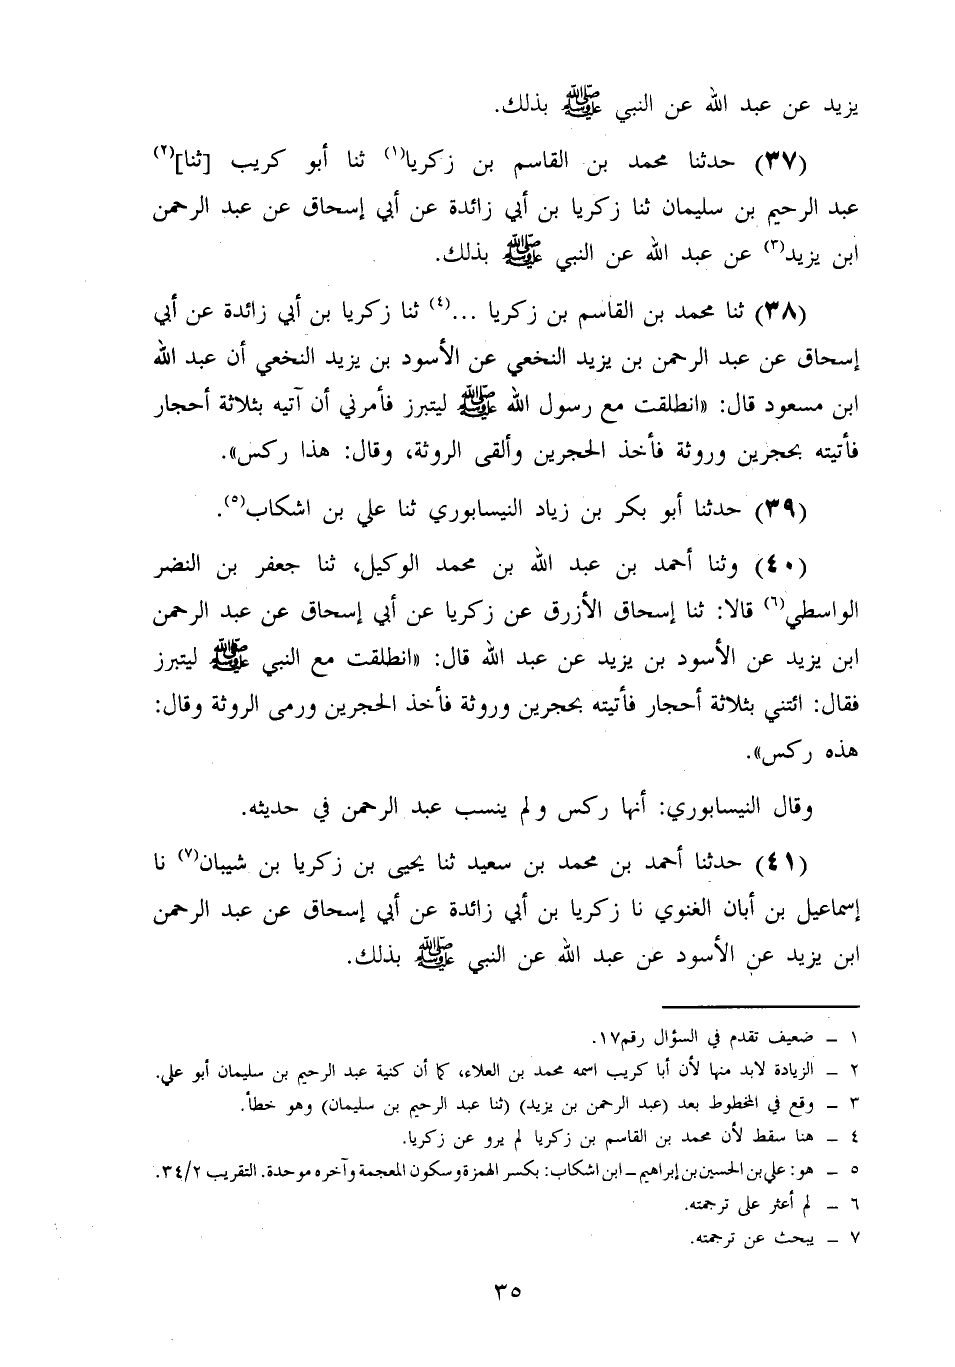 يزيد عن عبد الله عن النبي ﷺ بذلك.
(٣٧) حدثنا محمد بن القاسم بن زكريا(١) ثنا أبو كريب [ثنا](٢)
عبد الرحيم بن سليمان ثنا زكريا بن أبي زائدة عن أبي إسحاق عن عبد الرحمن
ابن يزيد(٣) عن عبد الله عن النبي ﷺ بذلك.
(٣٨) ثنا محمد بن القاسم بن زكريا ...(٤) ثنا زكريا بن أبي زائدة عن أبي
إسحاق عن عبد الرحمن بن يزيد النخعي عن الأسود بن يزيد النخعي أن عبد الله
ابن مسعود قال: «انطلقت مع رسول الله ﷺ ليتبرز فأمرني أن آتيه بثلاثة أحجار
فأتيته بحجرين وروثة فأخذ الحجرين وألقى الروثة، وقال: هذا ركس».
(٣٩) حدثنا أبو بكر بن زياد النيسابوري ثنا علي بن اشكاب(٥).
(٤٠) وثنا أحمد بن عبد الله بن محمد الوكيل، ثنا جعفر بن النضر
الواسطي(٦) قالا: ثنا إسحاق الأزرق عن زكريا عن أبي إسحاق عن عبد الرحمن
ابن يزيد عن الأسود بن يزيد عن عبد الله قال: «انطلقت مع النبي ﷺ ليتبرز
فقال: ائتني بثلاثة أحجار فأتيته بحجرين وروثة فأخذ الحجرين ورمى الروثة وقال:
هذه ركس».
وقال النيسابوري: أنها ركس ولم ينسب عبد الرحمن في حديثه.
(٤١) حدثنا أحمد بن محمد بن سعيد ثنا يحيى بن زكريا بن شيبان(٧) نا
إسماعيل بن أبان الغنوي نا زكريا بن أبي زائدة عن أبي إسحاق عن عبد الرحمن
ابن يزيد عن الأسود عن عبد الله عن النبي ﷺ بذلك.
١ ـ ضعيف تقدم في السؤال رقم١٧.
٢ ـ الزيادة لابد منها لأن أبا كريب اسمه محمد بن العلاء، كما أن كنية عبد الرحيم بن سليمان أبو علي.
٣ ـ وقع في المخطوط بعد (عبد الرحمن بن يزيد) (ثنا عبد الرحيم بن سليمان) وهو خطأ.
٤ ـ هنا سقط لأن محمد بن القاسم بن زكريا لم يرو عن زكريا.
٥ ـ هو: علي بن الحسين بن إبراهيم ـ ابن اشكاب: بكسر الهمزة وسكون المعجمة وآخره موحدة. التقريب ٣٤/٢.
٦ ـ لم أعثر على ترجمته.
٧ ـ يبحث عن ترجمته.
٣٥